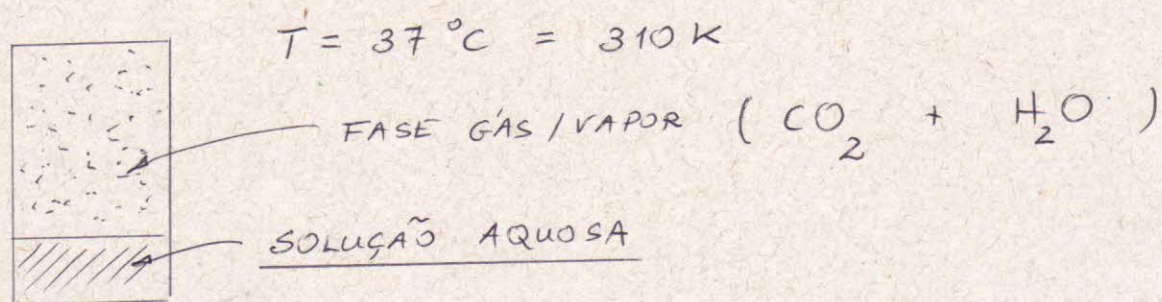 T = 37 °C = 310 K
FASE GÁS / VAPOR ( CO₂ + H₂O )
SOLUÇÃO AQUOSA